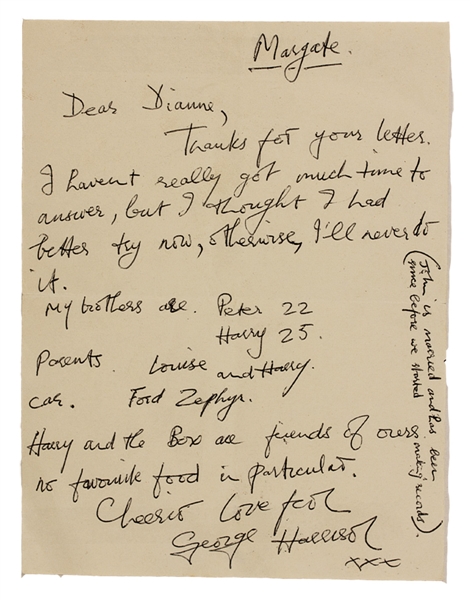 Margate.
Dear Dianne,
Thanks for your letter.
I havent really got much time to
answer, but I thought I had
better try now, otherwise, I'll never do
it.
My brothers are. Peter 22
Harry 25.
Parents. Louise and Harry.
car. Ford Zephyr.
Harry and the Box are friends of ours
no favourite food in particular.
Cheerio love from
George Harrison
xxx
(John is married and has been
since before we started making records).